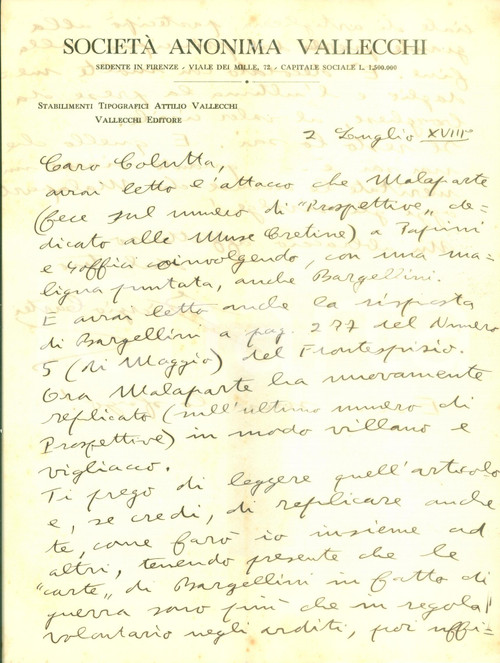 SOCIETÀ ANONIMA VALLECCHI
SEDENTE IN FIRENZE - VIALE DEI MILLE, 72 - CAPITALE SOCIALE L. 1.500.000
STABILIMENTI TIPOGRAFICI ATTILIO VALLECCHI
VALLECCHI EDITORE
2 Luglio XVIII
Caro Colutta,
avrai letto l'attacco che Malaparte
(fece sul numero di "Prospettive„ de=
dicato alle Muse Cretine) a Papini
e Soffici coinvolgendo, con una ma=
ligna puntata, anche Bargellini.
E avrai letto anche la risposta
di Bargellini a pag. 287 del Numero
5 (di Maggio) del Frontespizio.
Ora Malaparte ha nuovamente
replicato (sull'ultimo numero di
Prospettive) in modo villano e
vigliacco.
Ti prego di leggere quell'articolo
e, se credi, di replicare anche
te, come farò io insieme ad
altri, tenendo presente che le
"carte„ di Bargellini in fatto di
guerra sono più che in regola
volontario negli arditi, poi uffi=